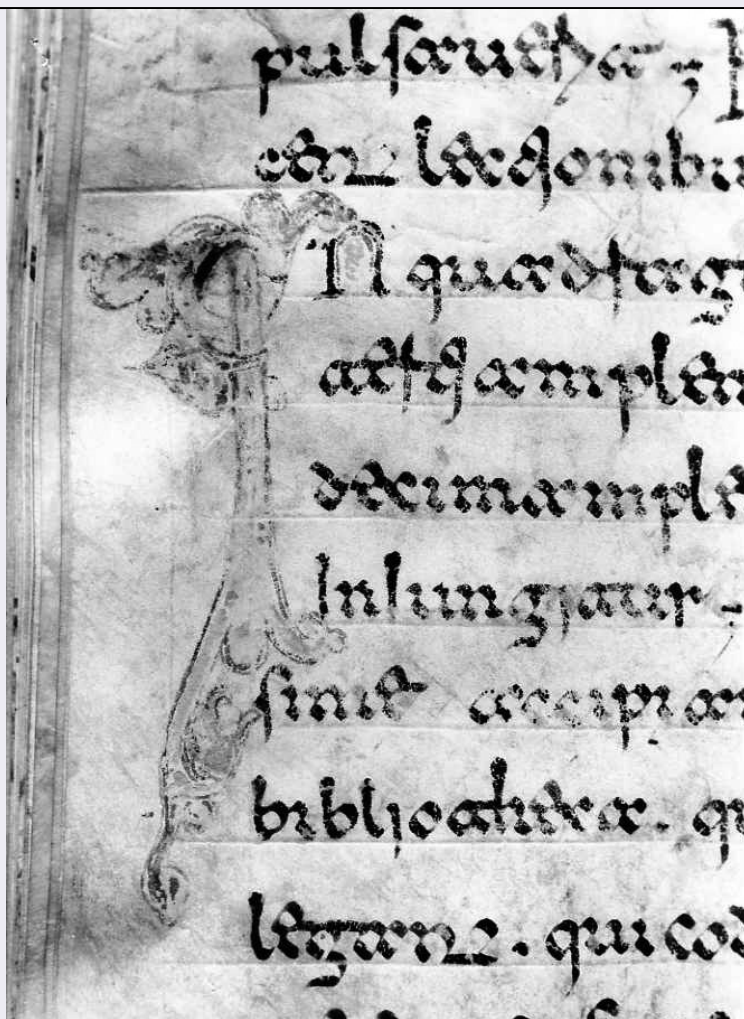 pulsa tertia
cent lectionibu
IN quadrag
tertiam plen
decimam ple
iniungitur;
sime accipian
bibliotheca. qu
legant. qui cod